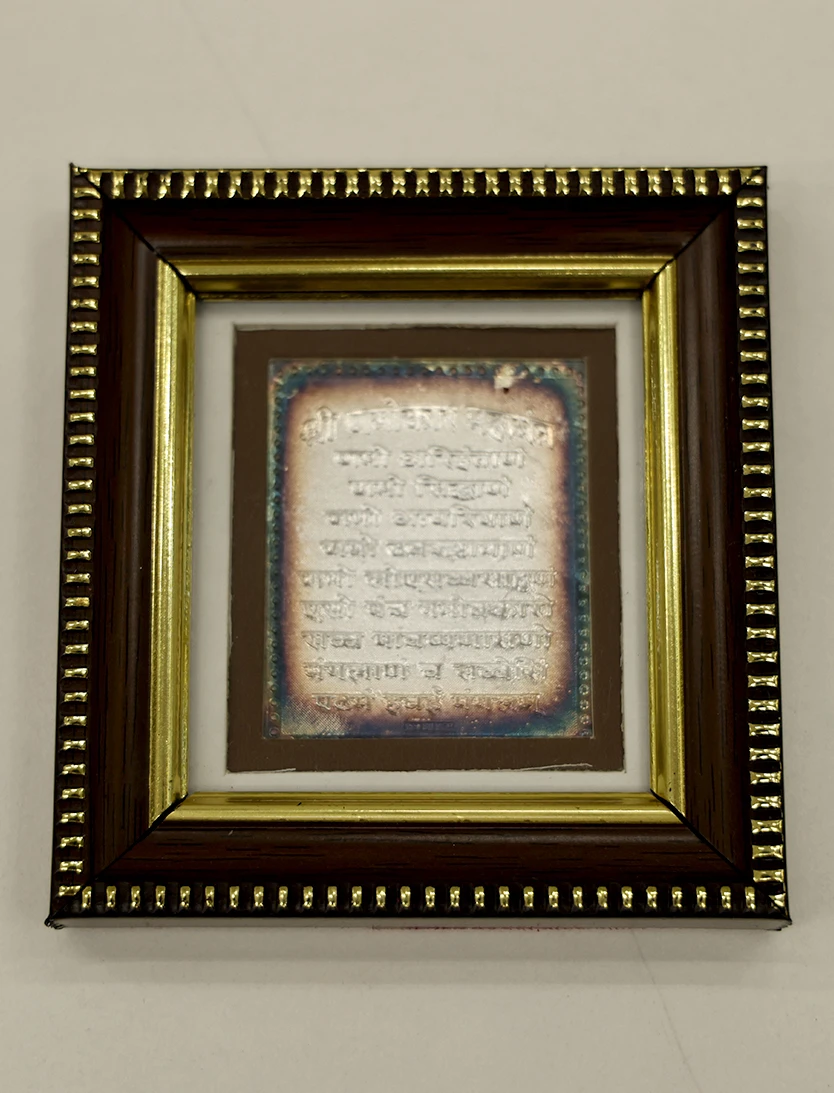 श्री णमोकार महामंत्र
णमो अरिहंताणं
णमो सिद्धाणं
णमो आयरियाणं
णमो उवज्झायाणं
णमो लोएसव्वसाहूणं
एसो पंच णमोक्कारो
सव्व पावप्पणासणो
मंगलाणं च सव्वेसिं
पढमं हवई मंगलम्